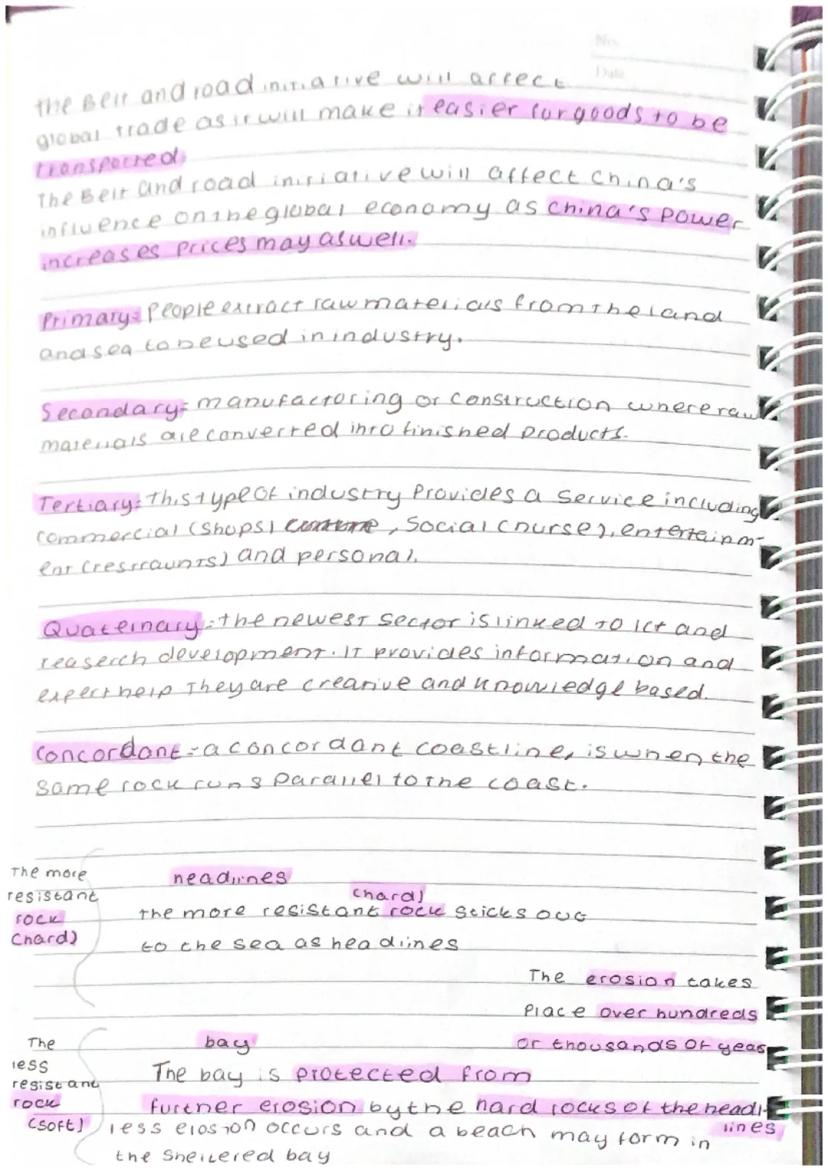 No.
Date
the Belt and road initiative will affect
global trade as it will make it easier for goods to be
transported.
The Belt and road initiative will affect China's
influence on the global economy as China's power
increases prices may aswell.
Primary: People extract raw materials from the land
and sea to be used in industry.
Secondary: manufactoring or construction where raw
materials are converted into finished products.
Tertiary: This type of industry provides a service including
commercial (shops) , Social (nurse), entertainm-
ent (restraunts) and personal.
Quaternary: the newest sector is linked to ict and
reaserch development. It provides information and
expert help They are creative and knowledge based.
Concordant - a concordant coastline, is when the
same rock runs parallel to the coast.
The more
resistant
rock
(hard)
headlines
(hard)
the more resistant rock sticks out
to the sea as headlines
The erosion takes
Place over hundreds
or thousands of yeas
The
less
resistant
rock
(soft)
bay
The bay is protected from
further erosion by the hard rocks of the headl-
ines
less erosion occurs and a beach may form in
the sheltered bay